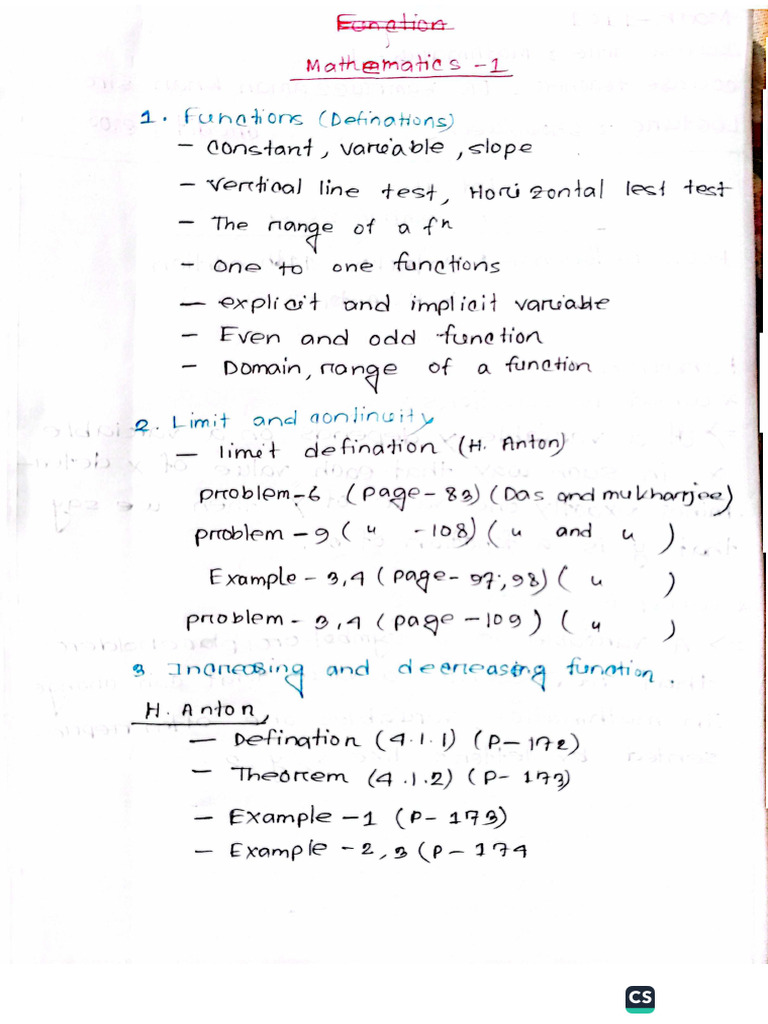 Function
Mathematics - 1
1. Functions (Definations)
- Constant, variable, slope
- Vertical line test, Horizontal lest test
- The range of a fn
- One to one functions
- explicit and implicit variable
- Even and odd function
- Domain, range of a function
2. Limit and continuity
- limit defination (H. Anton)
problem - 6 (page - 83) (Das and mukharjee)
problem - 9 ( " - 108) ( " and " )
Example - 3,4 (page - 97, 98) ( " )
problem - 3,4 (page - 109) ( " )
3 Increasing and decreasing function.
H. Anton,
- Defination (4.1.1) (P- 172)
- Theorem (4.1.2) (P- 173)
- Example - 1 (P- 173)
- Example - 2, 3 (P- 174
CS